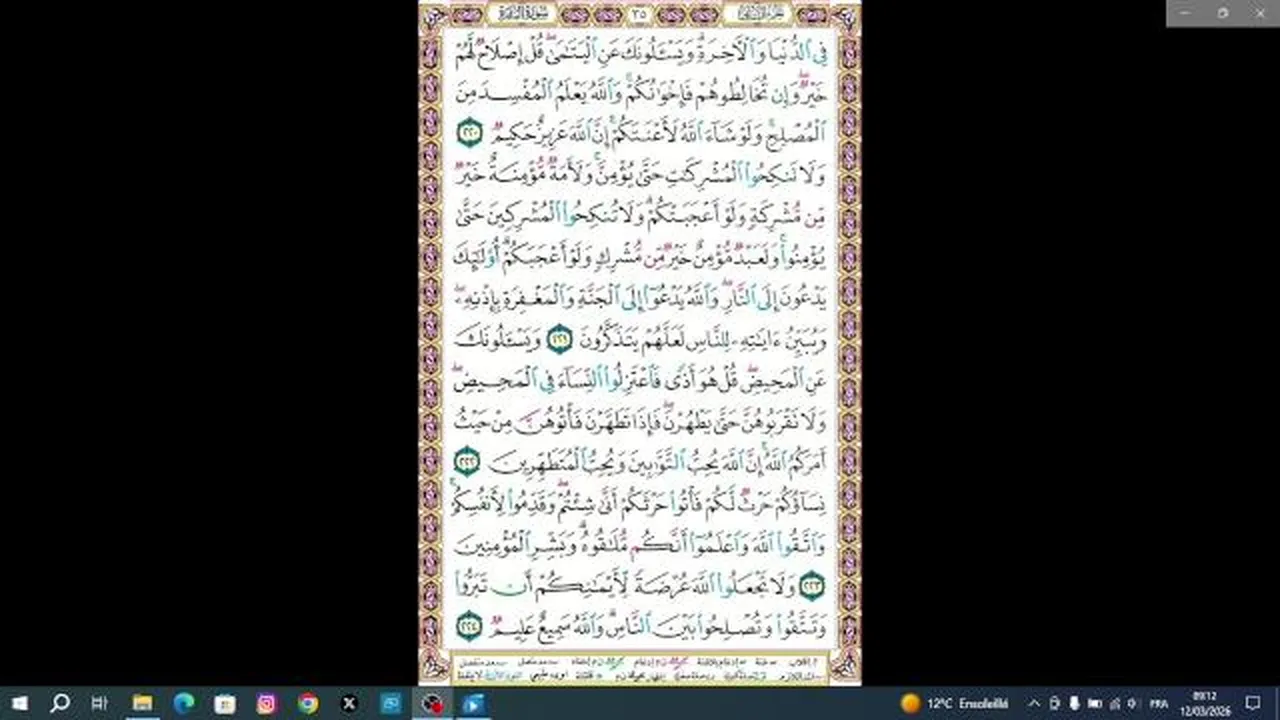 سورة البقرة ٣٥ الجزء الثاني
فِي الدُّنْيَا وَالْآخِرَةِ ۗ وَيَسْـَٔلُونَكَ عَنِ الْيَتَـٰمَىٰ ۖ قُلْ إِصْلَاحٌ لَّهُمْ
خَيْرٌ ۖ وَإِن تُخَالِطُوهُمْ فَإِخْوَٰنُكُمْ ۚ وَاللَّهُ يَعْلَمُ الْمُفْسِدَ مِنَ
الْمُصْلِحِ ۚ وَلَوْ شَآءَ اللَّهُ لَأَعْنَتَكُمْ ۚ إِنَّ اللَّهَ عَزِيزٌ حَكِيمٌ ٢٢٠
وَلَا تَنكِحُوا الْمُشْرِكَـٰتِ حَتَّىٰ يُؤْمِنَّ ۚ وَلَأَمَةٌ مُّؤْمِنَةٌ خَيْرٌ
مِّن مُّشْرِكَةٍ وَلَوْ أَعْجَبَتْكُمْ ۗ وَلَا تُنكِحُوا الْمُشْرِكِينَ حَتَّىٰ
يُؤْمِنُوا ۚ وَلَعَبْدٌ مُّؤْمِنٌ خَيْرٌ مِّن مُّشْرِكٍ وَلَوْ أَعْجَبَكُمْ ۗ أُو۟لَـٰٓئِكَ
يَدْعُونَ إِلَى النَّارِ ۖ وَاللَّهُ يَدْعُوٓا إِلَى الْجَنَّةِ وَالْمَغْفِرَةِ بِإِذْنِهِۦ ۖ
وَيُبَيِّنُ ءَايَـٰتِهِۦ لِلنَّاسِ لَعَلَّهُمْ يَتَذَكَّرُونَ ٢٢١ وَيَسْـَٔلُونَكَ
عَنِ الْمَحِيضِ ۖ قُلْ هُوَ أَذًى فَاعْتَزِلُوا النِّسَآءَ فِي الْمَحِيضِ ۖ
وَلَا تَقْرَبُوهُنَّ حَتَّىٰ يَطْهُرْنَ ۖ فَإِذَا تَطَهَّرْنَ فَأْتُوهُنَّ مِنْ حَيْثُ
أَمَرَكُمُ اللَّهُ ۚ إِنَّ اللَّهَ يُحِبُّ التَّوَّٰبِينَ وَيُحِبُّ الْمُتَطَهِّرِينَ ٢٢٢
نِسَآؤُكُمْ حَرْثٌ لَّكُمْ فَأْتُوا حَرْثَكُمْ أَنَّىٰ شِئْتُمْ ۖ وَقَدِّمُوا لِأَنفُسِكُمْ ۚ
وَاتَّقُوا اللَّهَ وَاعْلَمُوٓا أَنَّكُم مُّلَـٰقُوهُ ۗ وَبَشِّرِ الْمُؤْمِنِينَ
٢٢٣ وَلَا تَجْعَلُوا اللَّهَ عُرْضَةً لِّأَيْمَـٰنِكُمْ أَن تَبَرُّوا
وَتَتَّقُوا وَتُصْلِحُوا بَيْنَ النَّاسِ ۗ وَاللَّهُ سَمِيعٌ عَلِيمٌ ٢٢٤
12°C Ensoleillé
FRA
09:12
12/03/2026